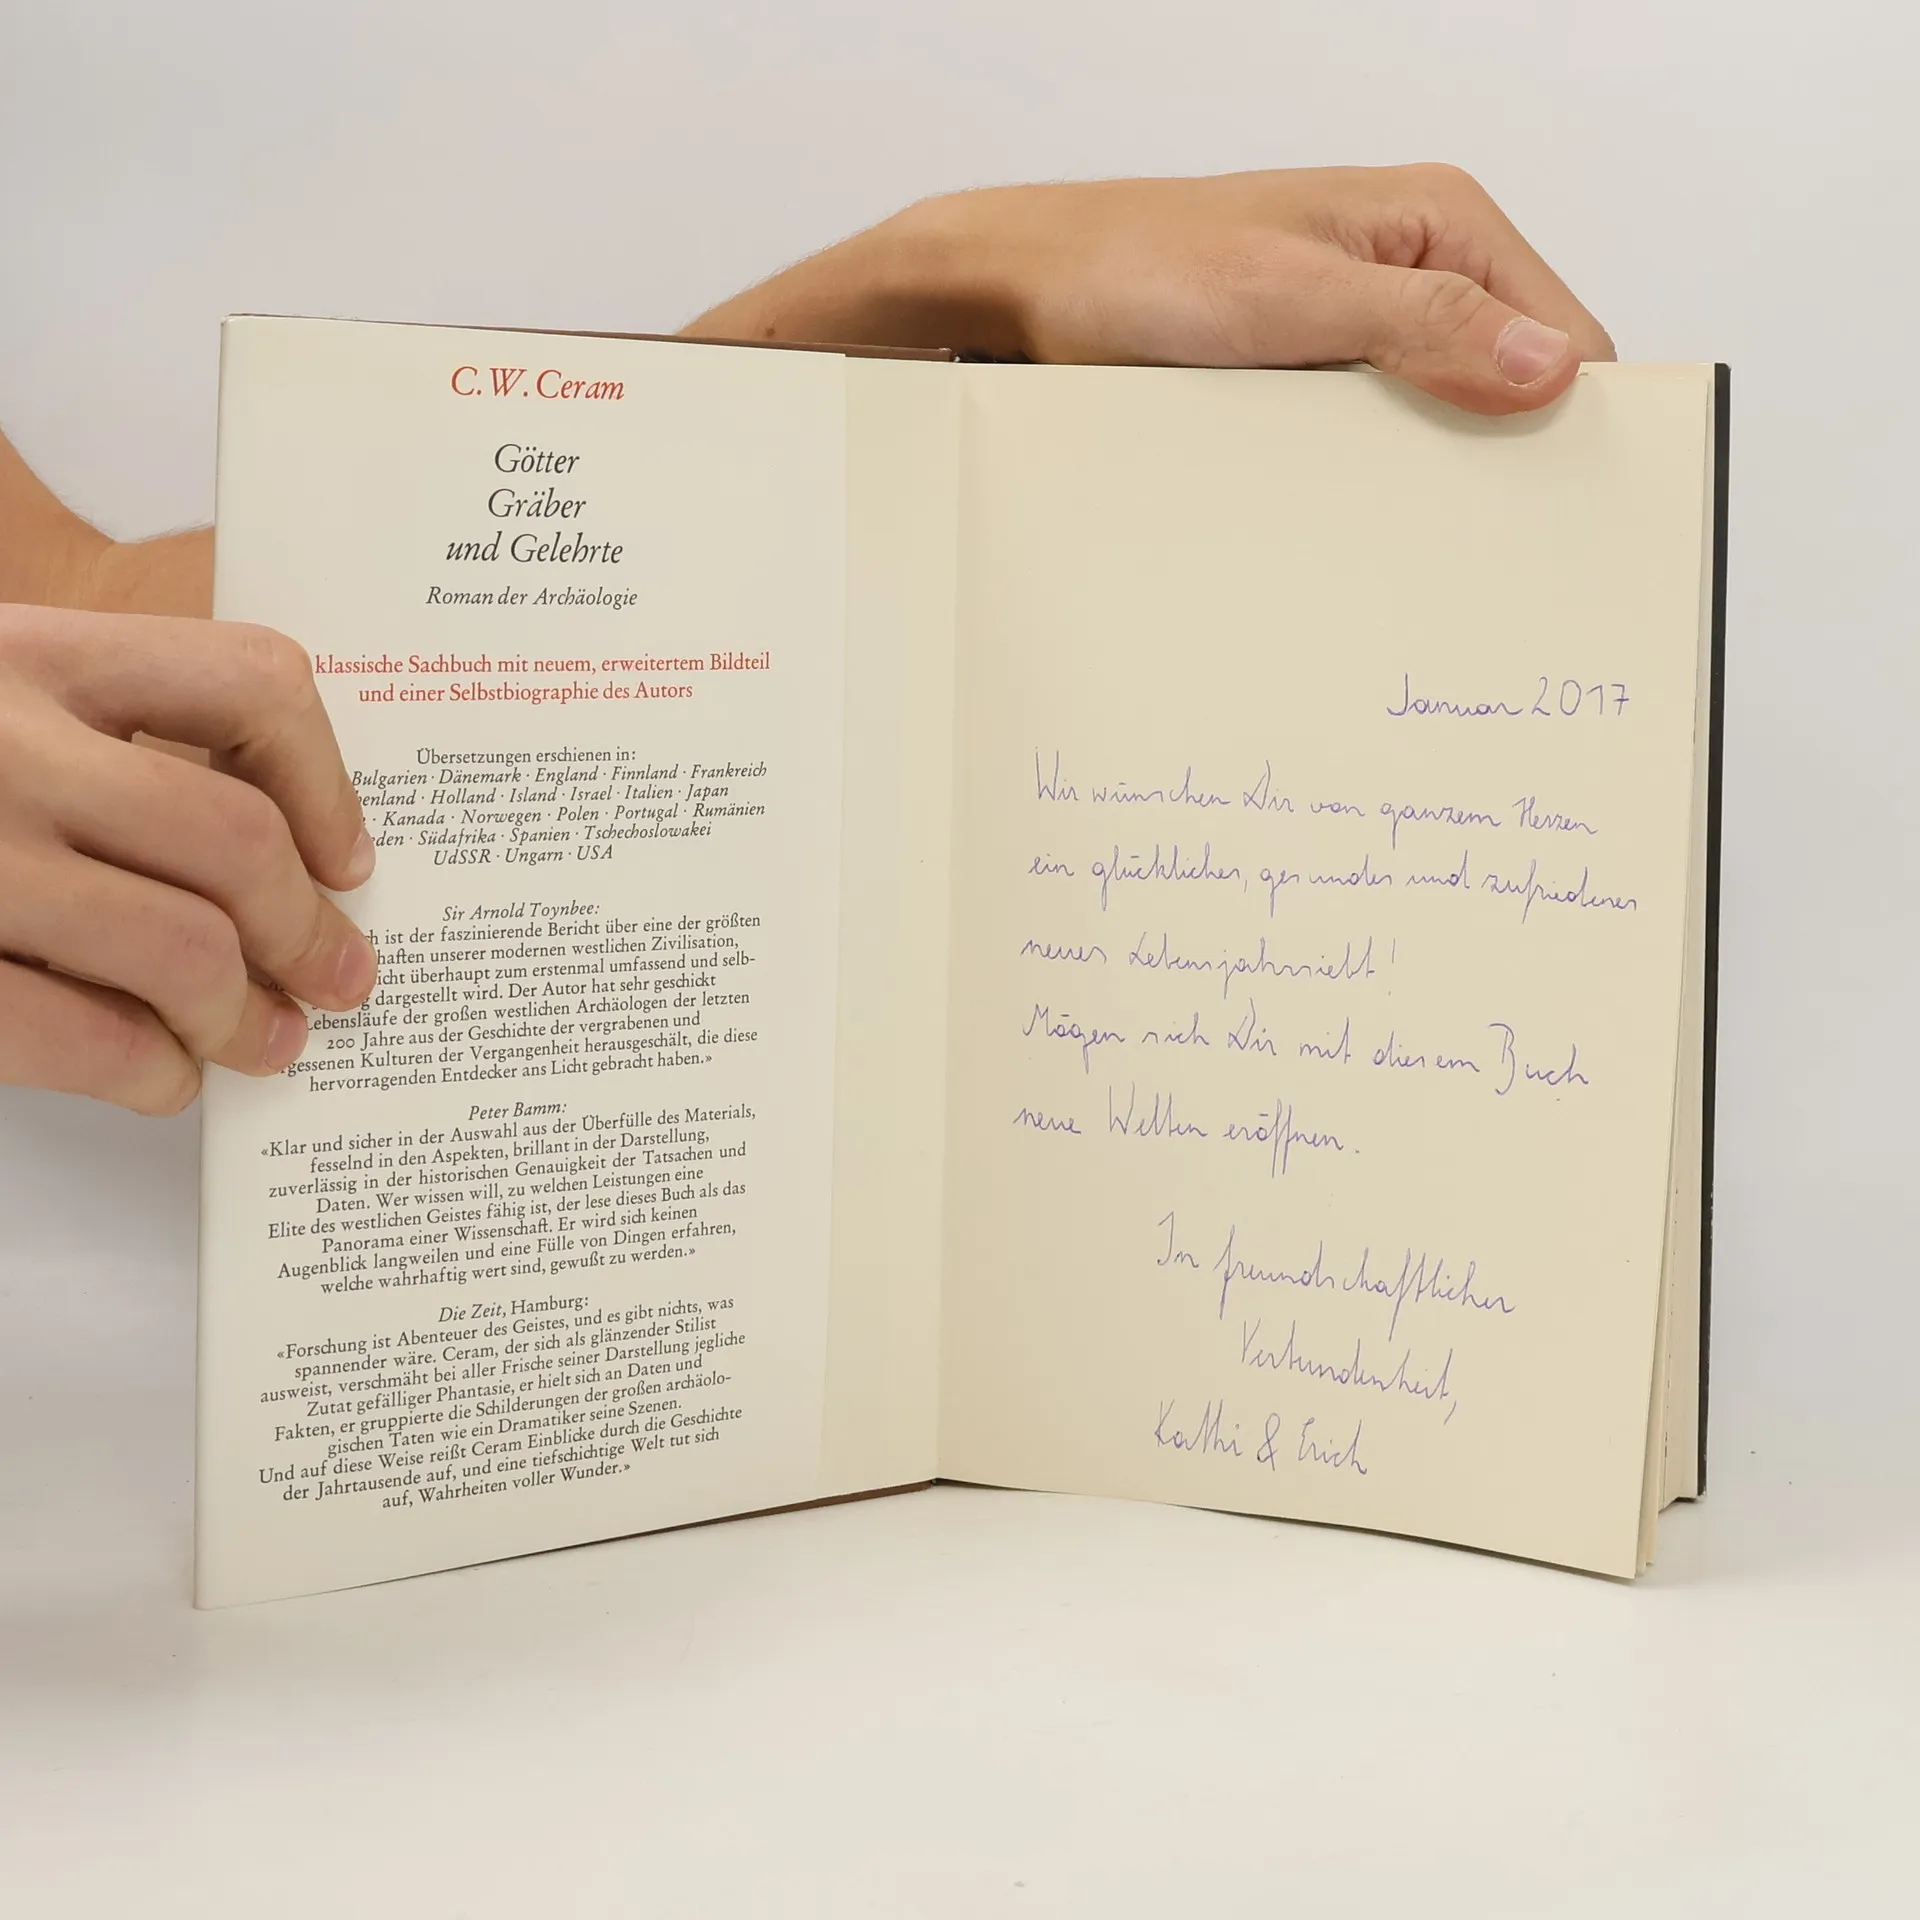 C. W. Ceram
Götter
Gräber
und Gelehrte
Roman der Archäologie
klassische Sachbuch mit neuem, erweitertem Bildteil
und einer Selbstbiographie des Autors
Übersetzungen erschienen in:
Bulgarien · Dänemark · England · Finnland · Frankreich
henland · Holland · Island · Israel · Italien · Japan
· Kanada · Norwegen · Polen · Portugal · Rumänien
eden · Südafrika · Spanien · Tschechoslowakei
UdSSR · Ungarn · USA
Sir Arnold Toynbee:
ch ist der faszinierende Bericht über eine der größten
haften unserer modernen westlichen Zivilisation,
icht überhaupt zum erstenmal umfassend und selb-
g dargestellt wird. Der Autor hat sehr geschickt
Lebensläufe der großen westlichen Archäologen der letzten
200 Jahre aus der Geschichte der vergrabenen und
gessenen Kulturen der Vergangenheit herausgeschält, die diese
hervorragenden Entdecker ans Licht gebracht haben.»
Peter Bamm:
«Klar und sicher in der Auswahl aus der Überfülle des Materials,
fesselnd in den Aspekten, brillant in der Darstellung,
zuverlässig in der historischen Genauigkeit der Tatsachen und
Daten. Wer wissen will, zu welchen Leistungen eine
Elite des westlichen Geistes fähig ist, der lese dieses Buch als das
Panorama einer Wissenschaft. Er wird sich keinen
Augenblick langweilen und eine Fülle von Dingen erfahren,
welche wahrhaftig wert sind, gewußt zu werden.»
Die Zeit, Hamburg:
«Forschung ist Abenteuer des Geistes, und es gibt nichts, was
spannender wäre. Ceram, der sich als glänzender Stilist
ausweist, verschmäht bei aller Frische seiner Darstellung jegliche
Zutat gefälliger Phantasie, er hielt sich an Daten und
Fakten, er gruppierte die Schilderungen der großen archäolo-
gischen Taten wie ein Dramatiker seine Szenen.
Und auf diese Weise reißt Ceram Einblicke durch die Geschichte
der Jahrtausende auf, und eine tiefschichtige Welt tut sich
auf, Wahrheiten voller Wunder.»
Januar 2017
Wir wünschen Dir von ganzem Herzen
ein glückliches, gesundes und zufriedenes
neues Lebensjahrsiebt!
Mögen sich Dir mit diesem Buch
neue Welten eröffnen.
In freundschaftlicher
Verbundenheit,
Kathi & Erich